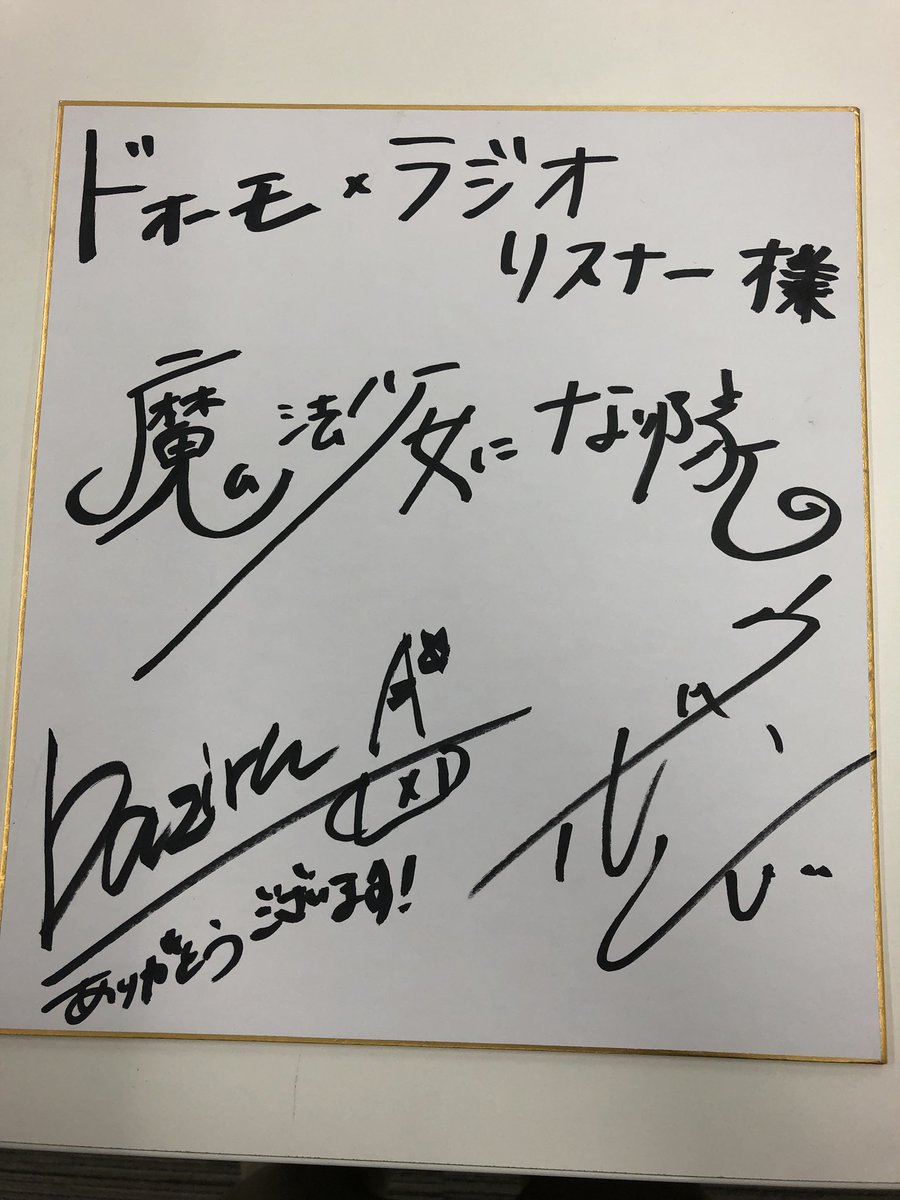 ドォーモ×ラジオ
リスナー様
魔法少女になり隊
ありがとうございます!